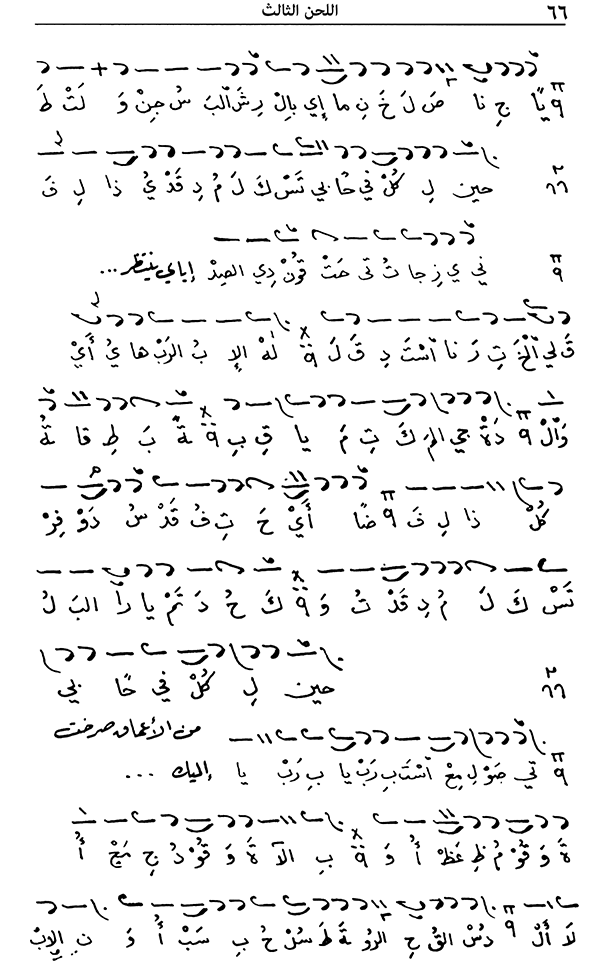 ٦٦ اللحن الثالث
يًا جِ نا صَ لَ خَ نِ ما إي بِالْ رِ شَ الْبَ سُ جِنْ وَ لَتْ طَ
حين لِ كُلْ في حًا بي تَسْ كَ لَ مُ دِ قَدْ يُ ذا لِ فَ
في ي زِ جا تُ تى حَتْ قُونْ دِي الصِدْ إياي ينتظر ...
قَ لي الْخَ تِ رَ نا اسْتَ دِ قَ لَ لَهْ الإ بُ الرَبْ ها يُ أَيْ
وَالْ دَةْ جي المَ كَ تِ مَ يا قِ بِ ةً بَ طِ قا ةُ
كُلْ ذا لِ فَ ضًا أَيْ حَ تِ فُ قَدْ سُ دَوْ فِرْ
تَسْ كَ لَ مُ دِ قَدْ تُ وَ كَ حُ دَ تَمْ يا رًا البَ لُ
حين لِ كُلْ في حًا بي
من الأعماق صرخت
تي صَوْ لِ مِعْ اسْتَ بِ رَبْ يا بِ رَبْ يا إليك ...
ةَ وَ قُوْ مُ ظِ عَظْ أُ وَ بِ الآ ةَ وَ قُوْ دُ جِ مَجْ أُ
لَا أَلْ دُسْ القُ حِ الروُ ةَ طَ سُلْ حُ بِ سَبْ أُ وَ نِ الإبْ